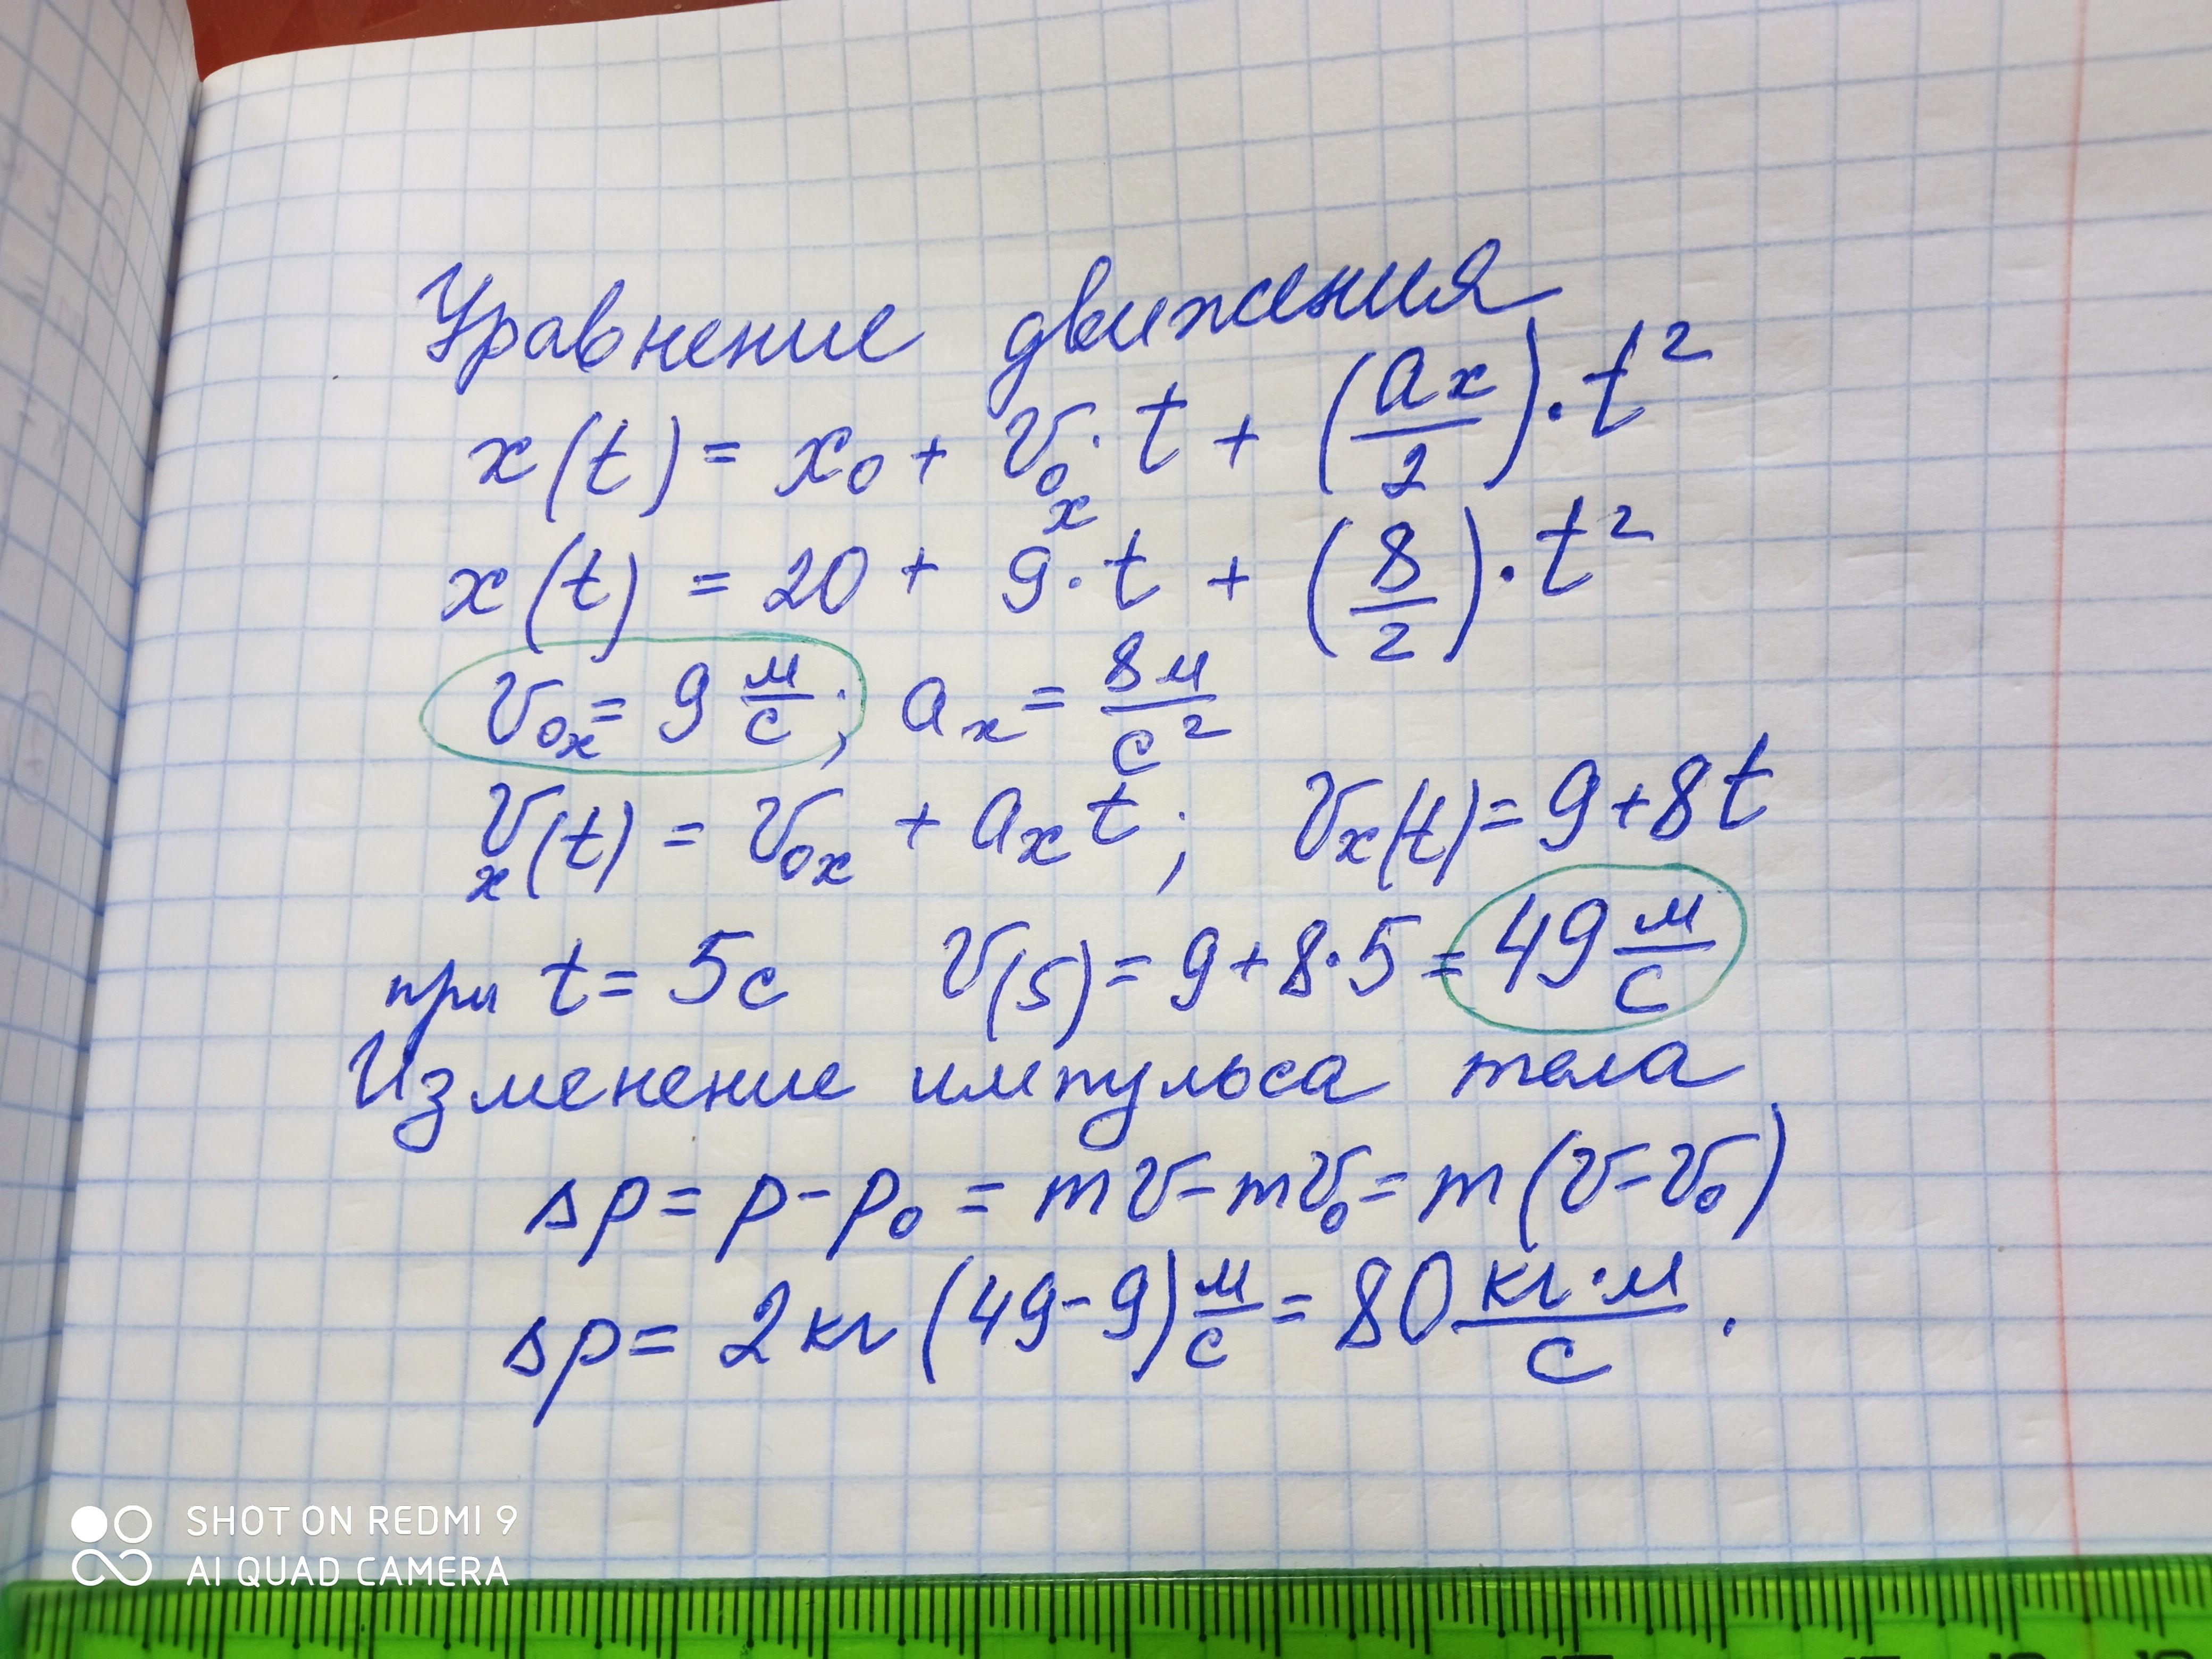 Уравнение движения
x(t) = x₀ + v₀ₓ · t + (aₓ/2) · t²
x(t) = 20 + 9 · t + (8/2) · t²
v₀ₓ = 9 м/с; aₓ = 8м/с²
vₓ(t) = v₀ₓ + aₓt; vₓ(t) = 9 + 8t
при t = 5с v(5) = 9 + 8 · 5 = 49 м/с
Изменение импульса тела
Δp = p - p₀ = mv - mv₀ = m(v - v₀)
Δp = 2кг (49 - 9) м/с = 80 кг·м/с.
SHOT ON REDMI 9
AI QUAD CAMERA